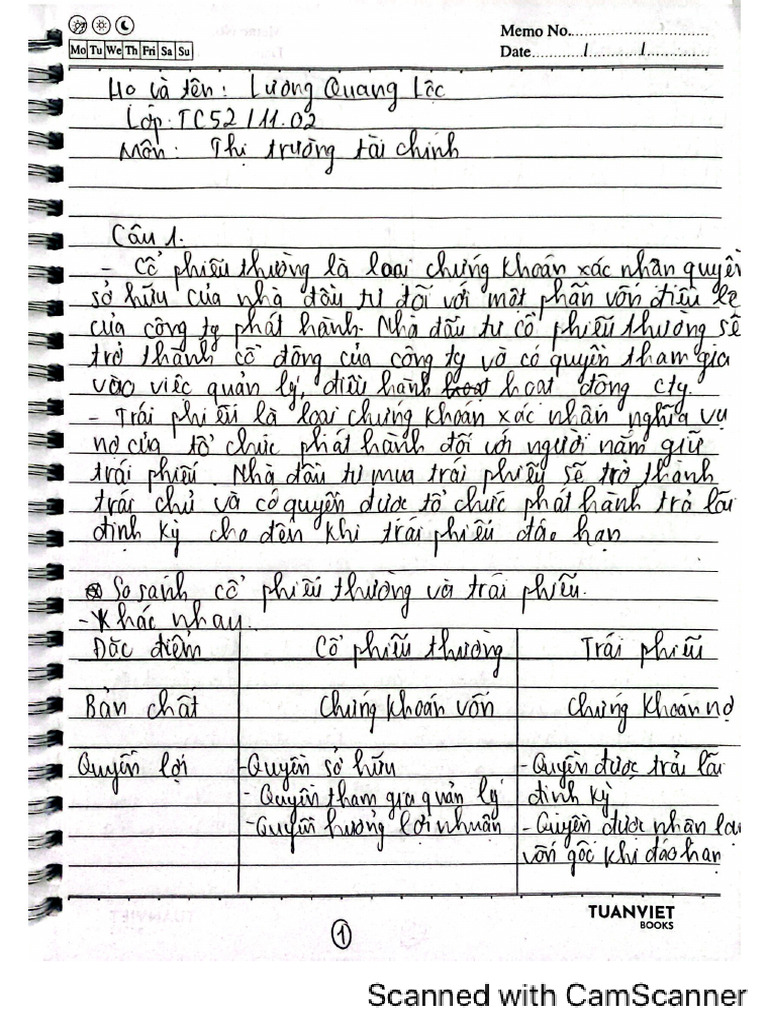 Memo No.
Mo Tu We Th Fri Sa Su
Date / /
Họ và tên: Lương Quang Lộc
Lớp: TC52/11.02
Môn: Thị trường tài chính
Câu 1.
- Cổ phiếu thường là loại chứng khoán xác nhận quyền
sở hữu của nhà đầu tư đối với một phần vốn điều lệ
của công ty phát hành. Nhà đầu tư cổ phiếu thường sẽ
trở thành cổ đông của công ty và có quyền tham gia
vào việc quản lý, điều hành hoạt động cty.
- Trái phiếu là loại chứng khoán xác nhận nghĩa vụ
nợ của tổ chức phát hành đối với người nắm giữ
trái phiếu. Nhà đầu tư mua trái phiếu sẽ trở thành
trái chủ và có quyền được tổ chức phát hành trả lãi
định kỳ cho đến khi trái phiếu đáo hạn
So sánh cổ phiếu thường và trái phiếu.
- Khác nhau.
Đặc điểm Cổ phiếu thường Trái phiếu
Bản chất Chứng khoán vốn Chứng khoán nợ
Quyền lợi - Quyền sở hữu - Quyền được trả lãi
- Quyền tham gia quản lý định kỳ
- Quyền hưởng lợi nhuận - Quyền được nhận lại
vốn gốc khi đáo hạn
TUANVIET
BOOKS
1
Scanned with CamScanner